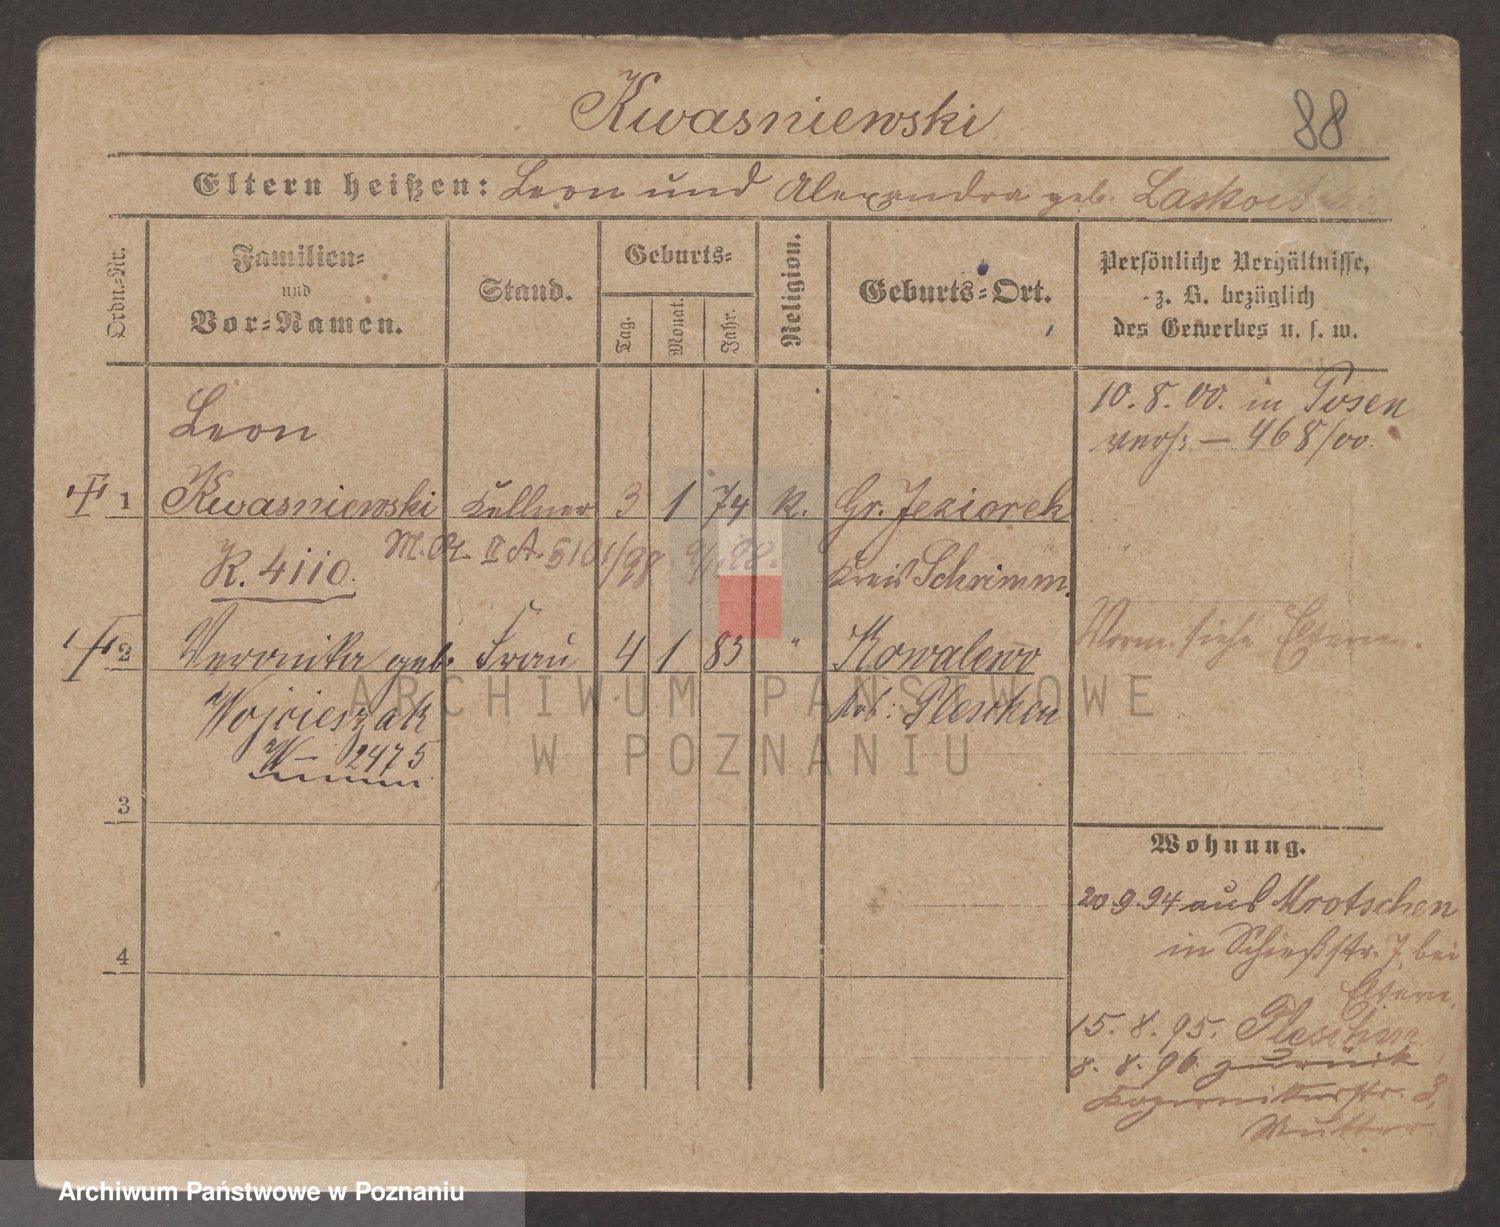 Kwasniewski
88
Eltern heißen: Leon und Alexandra geb.
Ordn.-Nr.
Familien-
und
Vor-Namen.
Stand.
Geburts-
Tag.
Monat.
Jahr.
Religion.
Geburts-Ort.
Persönliche Verhältnisse,
z. B. bezüglich
des Gewerbes u. s. w.
10. 8. 00. in Posen
verh: — 468/00.
Leon
1 Kwasniewski Kellner 3 1 74 K. Gr. Jeziorek
M. St. II A. 5101/98
K. 4110. Kreis Schrimm.
2 Veronika geb. Frau 4 1 83 " Kowalewo
Vorm. siehe Eltern.
Wojcieszak Krb: Pleschen
W— 2475
3
4
Wohnung.
20.9.94 aus Mrotschen
in Schießstr. 7, bei
Eltern.
15. 8. 95. Pleschen
8. 8. 96. zurück
Kopernikusstr. 3,
Mutter.
ARCHIWUM PAŃSTWOWE
W POZNANIU
Archiwum Państwowe w Poznaniu